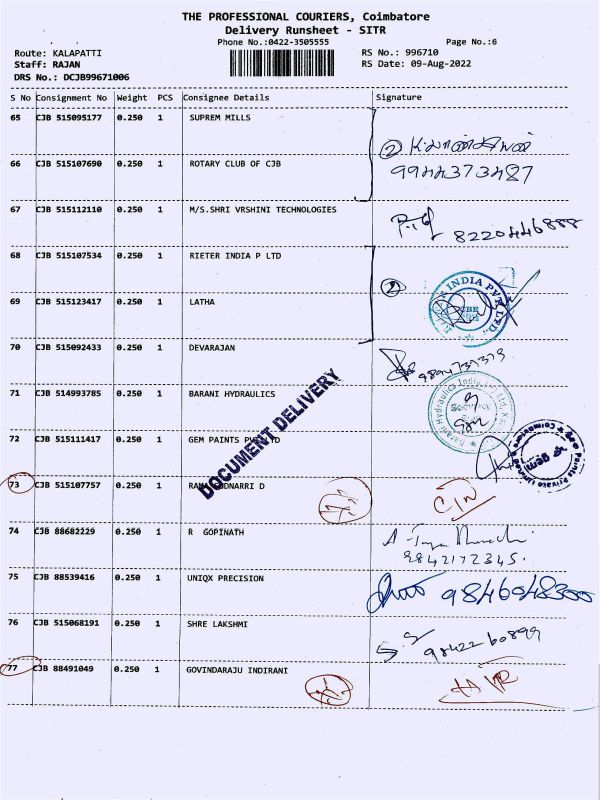 THE PROFESSIONAL COURIERS, Coimbatore
Delivery Runsheet - SITR
Phone No.:0422-3505555 Page No.:6
Route: KALAPATTI RS No.: 996710
Staff: RAJAN RS Date: 09-Aug-2022
DRS No.: DCJB99671006
S No Consignment No Weight PCS Consignee Details Signature
65 CJB 515095177 0.250 1 SUPREM MILLS
2
66 CJB 515107690 0.250 1 ROTARY CLUB OF CJB 9944373487
67 CJB 515112110 0.250 1 M/S.SHRI VRSHINI TECHNOLOGIES
8220446888
68 CJB 515107534 0.250 1 RIETER INDIA P LTD
2 INDIA PVT LTD
69 CJB 515123417 0.250 1 LATHA
70 CJB 515092433 0.250 1 DEVARAJAN
71 CJB 514993785 0.250 1 BARANI HYDRAULICS Barani Hydraulics India
DOCUMENT DELIVERY
72 CJB 515111417 0.250 1 GEM PAINTS
73 CJB 515107757 0.250 1 D
74 CJB 88682229 0.250 1 R GOPINATH
9842172345.
75 CJB 88539416 0.250 1 UNIQX PRECISION 9846048300
76 CJB 515068191 0.250 1 SHRE LAKSHMI
9842260899
77 CJB 88491049 0.250 1 GOVINDARAJU INDIRANI